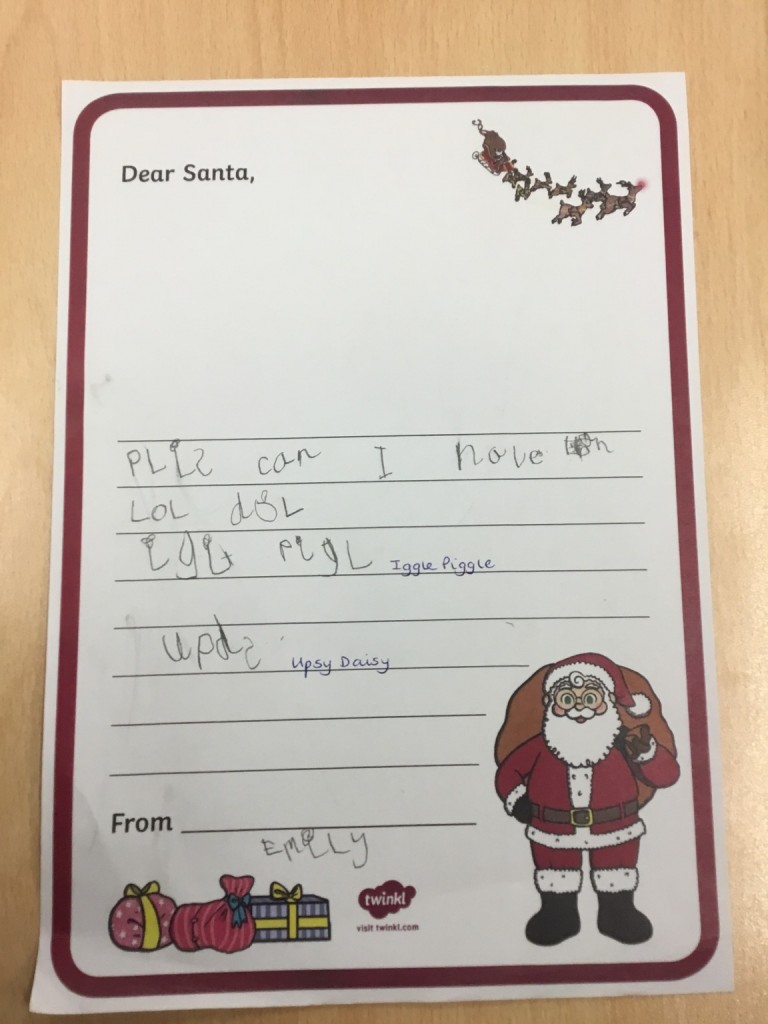 Dear Santa,
PLiz can I have
LOL doL
igL PigL Iggle Piggle
updz Upsy Daisy
From
EmiLLy
twinkl
visit twinkl.com